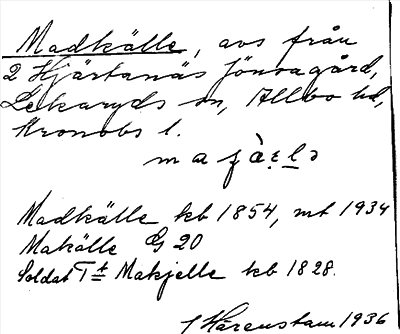 Madkälle, avs från
2 Hjärtanäs Jönsagård,
Lekaryds sn, Allbo hd,
Kronobs l.
m a j
Madkälle kb 1854, mt 1934
Makälle G 20
Soldat T:t Makjelle kb 1828.
Härenstam 1936